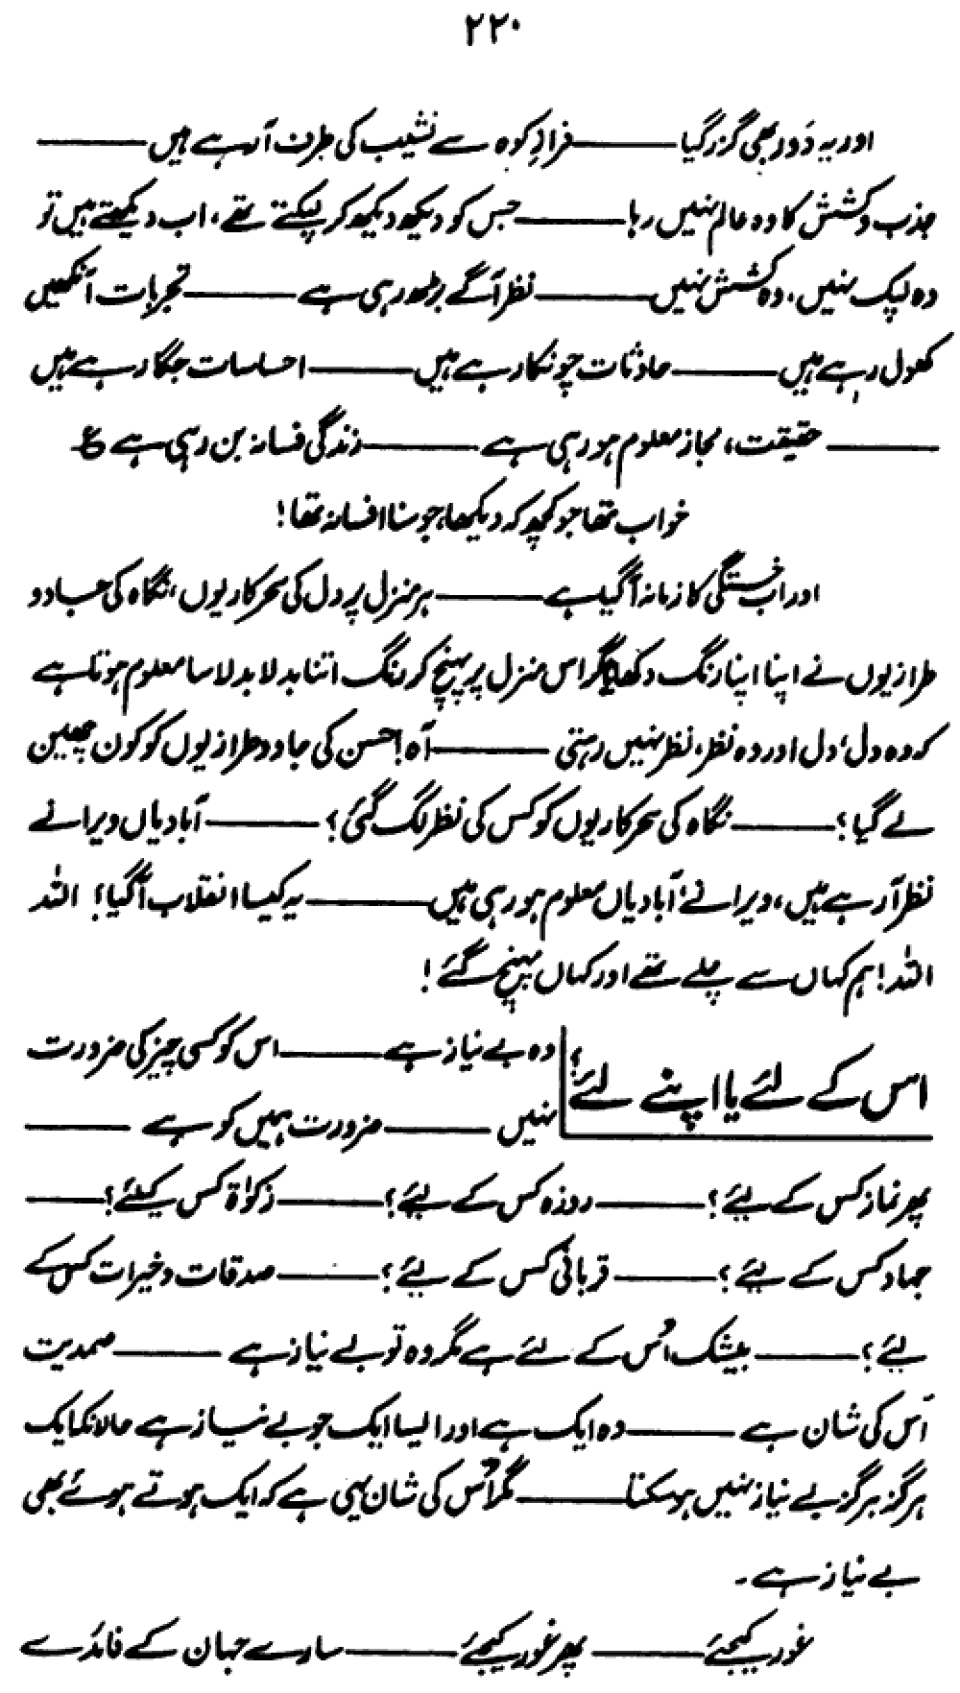 ۲۲۰
اور یہ دَور بھی گزر گیا ——— فرازِ کوہ سے نشیب کی طرف آ رہے ہیں ———
جذب و کشش کا وہ عالم نہیں رہا ——— جس کو دیکھ دیکھ کر لپکتے تھے، اب دیکھتے ہیں تو
وہ لپک نہیں، وہ کشش نہیں ——— نظر آگے بڑھ رہی ہے ——— تجربات آنکھیں
کھول رہے ہیں ——— حادثات چونکا رہے ہیں ——— احساسات جگا رہے ہیں
——— حقیقت، مجاز معلوم ہو رہی ہے ——— زندگی فسانہ بن رہی ہے ع
خواب تھا جو کچھ کہ دیکھا، جو سنا افسانہ تھا!
اور اب خستگی کا زمانہ آگیا ہے ——— ہر منزل پر دل کی سحر کاریوں، نگاہ کی جادو
طرازیوں نے اپنا اپنا رنگ دکھایا مگر اس منزل پر پہنچ کر رنگ اتنا بدلا بدلا سا معلوم ہوتا ہے
کہ وہ دل، دل اور وہ نظر، نظر نہیں رہتی ——— آہ! حسن کی جادو طرازیوں کو کون چھین
لے گیا؟ ——— نگاہ کی سحر کاریوں کو کس کی نظر لگ گئی؟ ——— آبادیاں ویرانے
نظر آ رہے ہیں، ویرانے آبادیاں معلوم ہو رہی ہیں ——— یہ کیسا انقلاب آگیا! اللہ
اللہ! ہم کہاں سے چلے تھے اور کہاں پہنچ گئے!
اس کے لئے یا اپنے لئے؟
وہ بے نیاز ہے ——— اس کو کسی چیز کی ضرورت
نہیں ——— ضرورت ہمیں کو ہے ———
پھر نماز کس کے لیئے؟ ——— روزہ کس کے لیئے؟ ——— زکوٰۃ کس کیلئے؟ ———
جہاد کس کے لیئے؟ ——— قربانی کس کے لیئے؟ ——— صدقات و خیرات کس کے
لیئے؟ ——— بیشک اُس کے لئے ہے مگر وہ تو بے نیاز ہے ——— صمدیت
اُس کی شان ہے ——— وہ ایک ہے اور ایسا ایک جو بے نیاز ہے حالانکہ ایک
ہرگز ہرگز بے نیاز نہیں ہو سکتا ——— مگر اُس کی شان یہی ہے کہ ایک ہوتے ہوئے بھی
بے نیاز ہے۔
غور کیجئے ——— پھر غور کیجئے ——— سارے جہان کے فائدے